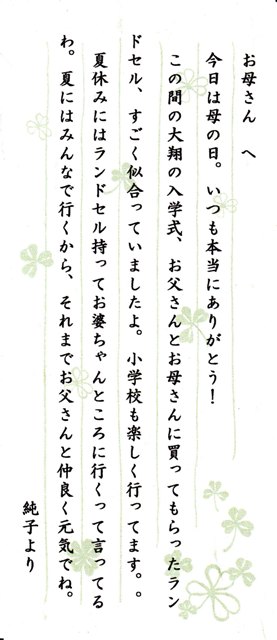 お母さん　へ
今日は母の日。いつも本当にありがとう！
この間の大翔の入学式、お父さんとお母さんに買ってもらったラン
ドセル、すごく似合っていましたよ。小学校も楽しく行ってます。。
夏休みにはランドセル持ってお婆ちゃんところに行くって言ってる
わ。夏にはみんなで行くから、それまでお父さんと仲良く元気でね。
純子より